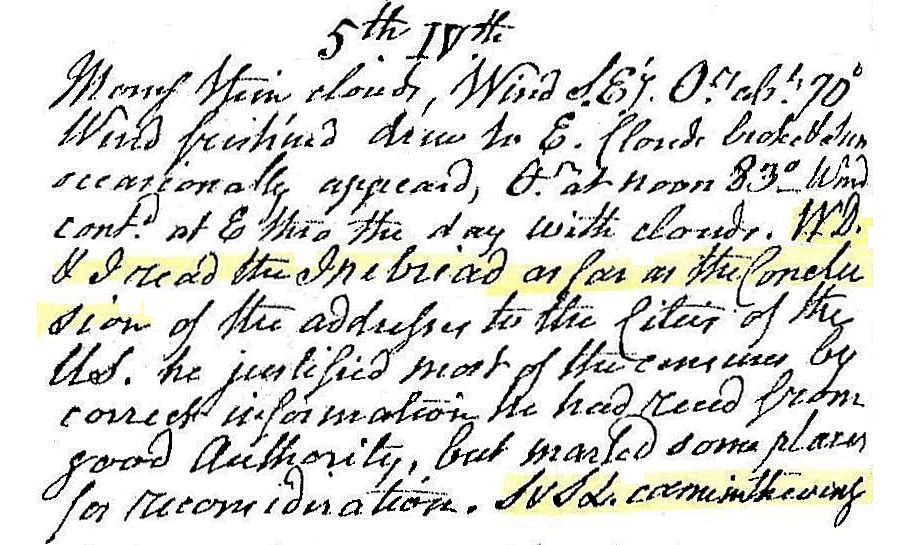 5th IVth
Morng thin clouds, Wind S.E'y. Or. abt. 70°
Wind freshned drew to E. Clouds broke & sun
occasionally appeard, Or. at noon 83°_ Wind
contd. at E thro the day with clouds. WD.
& I read the Inebriad as far as the Conclu
sion of the addresses to the Cities of the
US. he justified most of the censures by
correct information he had recd from
good Authority, but marked some places
for reconsideration. S & SL. came in the eveng